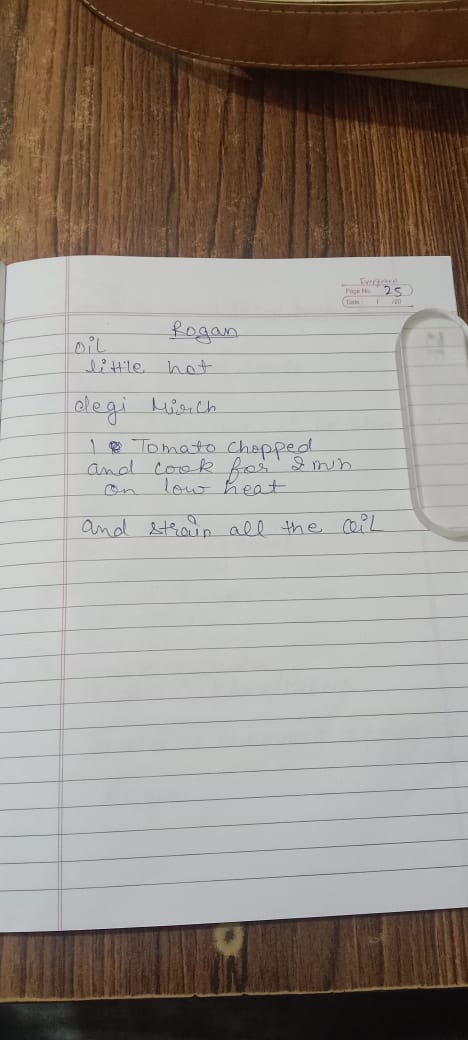 Evergreen
Page No. 25
Date: / /20
Rogan
oil
little hot
degi Mirch
1 Tomato chopped
and cook for 2 min
on low heat
and strain all the oil